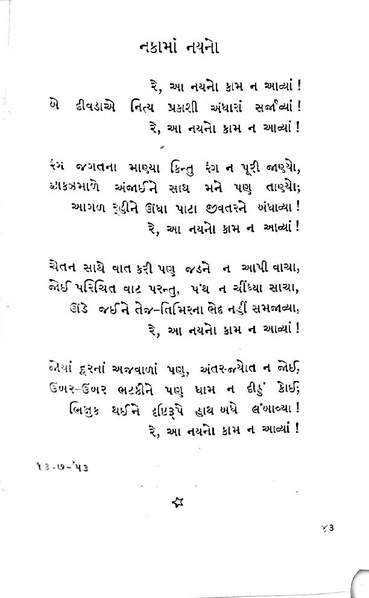 નકામાં નયનો
રે, આ નયનો કામ ન આવ્યાં !
બે દીવડાએ નિત્ય પ્રકાશી અંધારાં સર્જાવ્યાં !
રે, આ નયનો કામ ન આવ્યાં !
રંગ જગતના માણ્યા કિન્તુ રંગ ન પૂરી જાણ્યો,
ઝાકઝમાળે અંજાઈને સાથ મને પણ તાણ્યો;
આગળ રહીને ઊંધા પાટા જીવતરને બંધાવ્યા !
રે, આ નયનો કામ ન આવ્યાં !
ચેતન સાથે વાત કરી પણ જડને ન આપી વાચા,
જોઈ પરિચિત વાટ પરન્તુ, પંથ ન ચીંધ્યા સાચા,
ઊંડે જઈને તેજ-તિમિરના ભેદ નહીં સમજાવ્યા,
રે, આ નયનો કામ ન આવ્યાં !
જોયાં દૂરનાં અજવાળાં પણ, અંતર-જ્યોત ન જોઈ,
ઉંબર-ઉંબર ભટકીને પણ ધામ ન દીઠું કોઈ;
ભિક્ષુક થઈને દૃષ્ટિરૂપે હાથ બધે લંબાવ્યા !
રે, આ નયનો કામ ન આવ્યાં !
૧૩-૭-'૫૩
૪૩